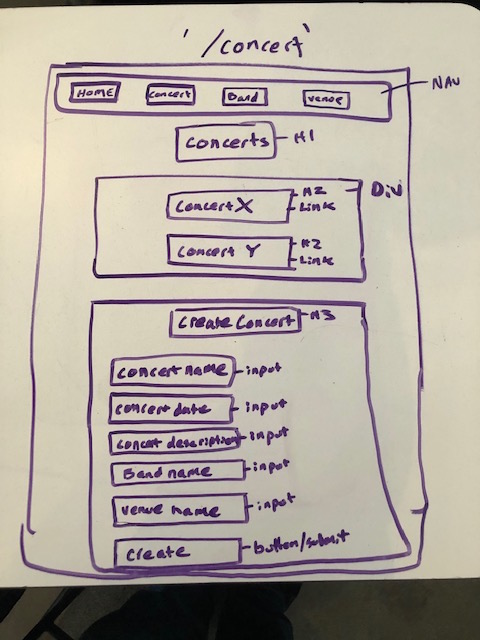 '/concert'
HOME concert Band venue NAV
Concerts H1
Div
Concert X H2
Link
Concert Y H2
Link
Create Concert H3
concert name input
concert date input
concert description input
Band name input
venue name input
create button/submit